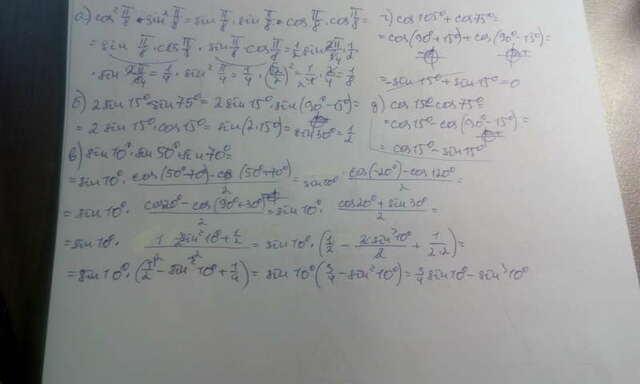 а) cos² π/8 · sin² π/8 = sin π/8 · sin π/8 · cos π/8 · cos π/8 =
= sin π/8 · cos π/8 · sin π/8 cos π/8 = 1/2 sin 2π/84 · 1/2
· sin 2π/84 = 1/4 · sin² π/4 = 1/4 · (√2/2)² = 1/4 · 2/4 = 1/8
б) 2 sin 15° · sin 75° = 2 sin 15° · sin (90° - 15°) =
= 2 sin 15° · cos 15° = sin (2·15°) = sin 30° = 1/2
в) sin 10° · sin 50° · sin 70° =
= sin 10° · cos (50°-70°) - cos (50°+70°) / 2 = sin 10° · cos (-20°) - cos 120° / 2 =
= sin 10° · cos 20° - cos (90° + 30°) / 2 = sin 10° · cos 20° + sin 30° / 2 =
= sin 10° · 1 - 2 sin² 10° + 1/2 / 2 = sin 10° · (1/2 - 2 sin² 10° / 2 + 1/2·2) =
= sin 10° · (1/2 - sin² 10° + 1/4) = sin 10° (3/4 - sin² 10°) = 3/4 sin 10° - sin³ 10°
г) cos 105° + cos 75° =
= cos (90° + 15°) + cos (90° - 15°) =
= - sin 15° + sin 15° = 0
д) cos 15° - cos 75° =
= cos 15° - cos (90° - 15°) =
= cos 15° - sin 15°